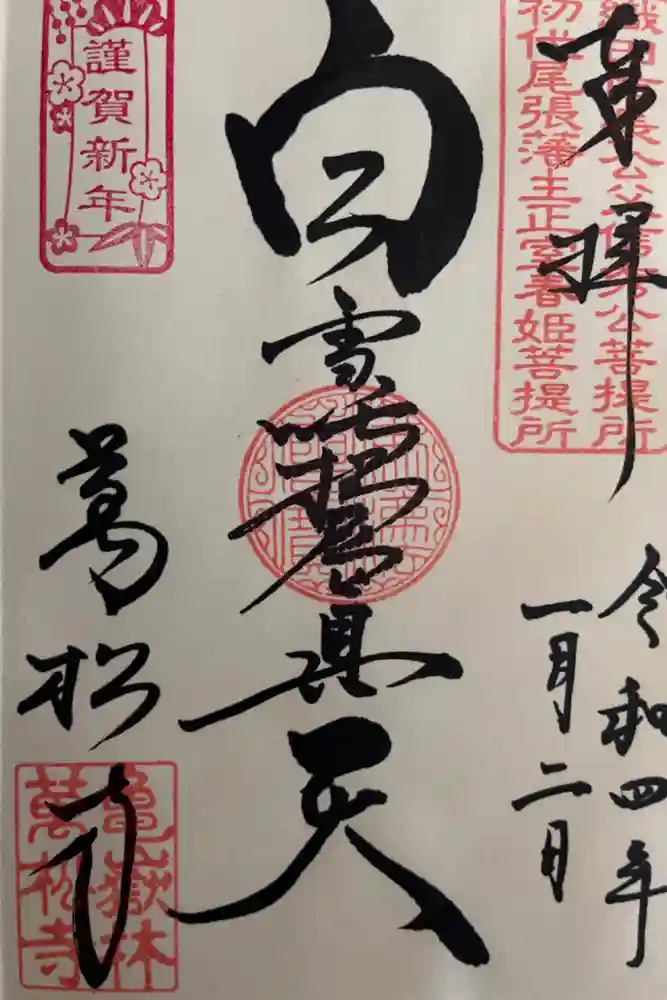 奉拝
織田信長公父信秀公菩提所
初代尾張藩主正室春姫菩提所
令和四年
一月二日
白雪吒枳尼真天
謹賀新年
萬松寺
亀嶽林
萬松寺